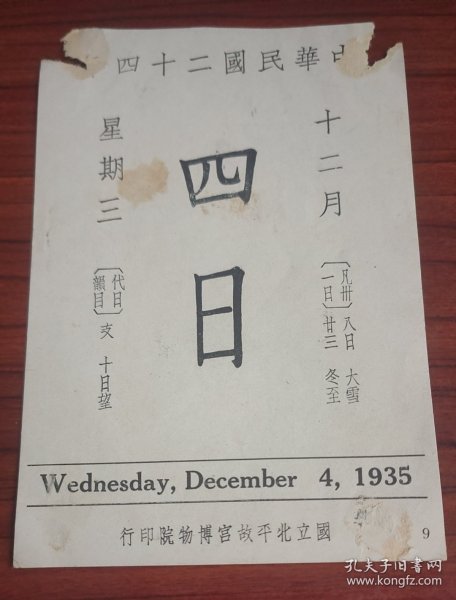 中華民國二十四
十二月
〔凡卅一日〕
八日 大雪
廿三 冬至
四日
星期三
〔代日韻目〕
支 十日望
Wednesday, December 4, 1935
國立北平故宮博物院印行
9
孔夫子旧书网
www.kongfz.com